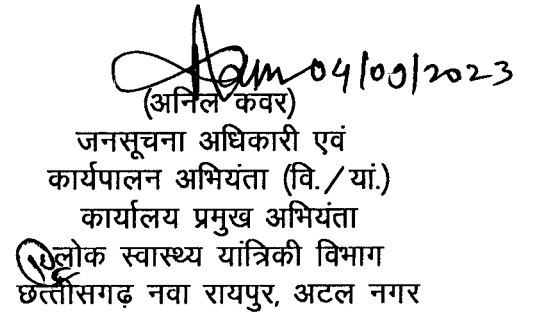 04/09/2023
(अनिल कवर)
जनसूचना अधिकारी एवं
कार्यपालन अभियंता (वि./यां.)
कार्यालय प्रमुख अभियंता
लोक स्वास्थ्य यांत्रिकी विभाग
छत्तीसगढ़ नवा रायपुर, अटल नगर